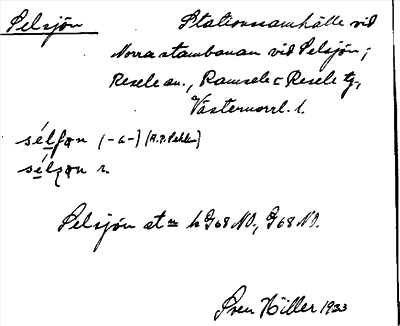 Selsjön
Stationssamhälle vid
Norra stambanan vid Selsjön;
Resele sn., Ramsele o Resele tg,
Västernorrl. l.
sélʃǫn (-ɷ-) (A.P. Pehrs.)
sélʒǫn r.
Selsjön stn h G68 NO., G68 NO.
Sven Hiller 1933